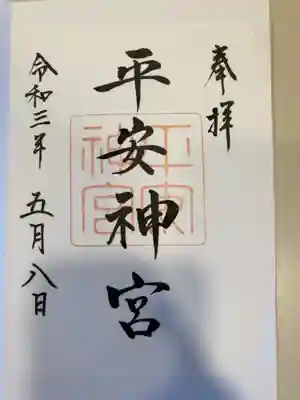 奉拝
平安神宮
平安
神宮
令和三年 五月八日